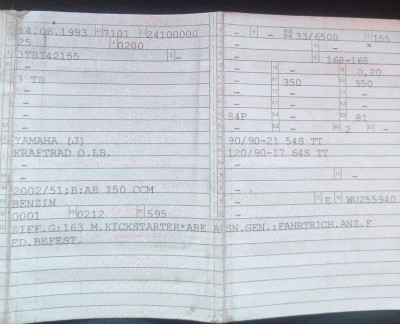 14.06.1993 7101 24100000
25 0200
3TBI42155 -
-
3 TB
-
-
YAMAHA (J)
KRAFTRAD O.LB.
-
-
2002/51;B:AB 150 CCM
BENZIN
0001 0212 595
ZIFF.G:163 M.KICKSTARTER*ABE ASN.GEN.:FAHRTRICH.ANZ.F
ED.BEFEST.
- - 33/6500 155
- -
- 168-168
- - 0,20
- 350 350
-
- - -
84P - 81
- - 2 -
90/90-21 54S TT
120/90-17 64S TT
-
-
- -
- E WU255940
-